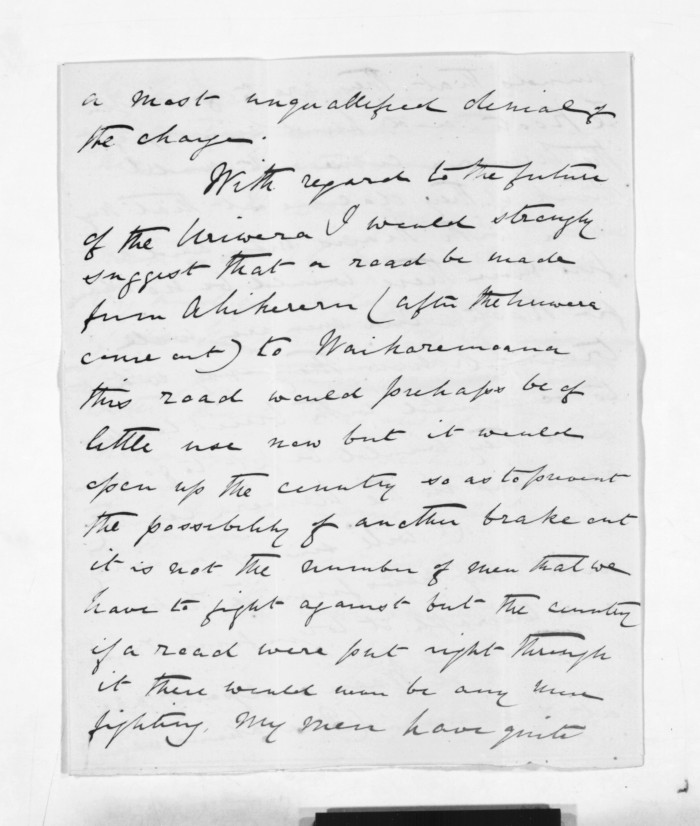 a most unqualified denial of
the charge.
With regard to the future
of the Uriwera I would strongly
suggest that a road be made
from Ahikereru (after the Uriwera
come out) to Waikaremoana
this road would perhaps be of
little use now but it would
open up the country so as to prevent
the possibility of another brake out
it is not the number of men that we
have to fight against but the country
if a road were put right through
it there would be any more
fighting. My men have quite